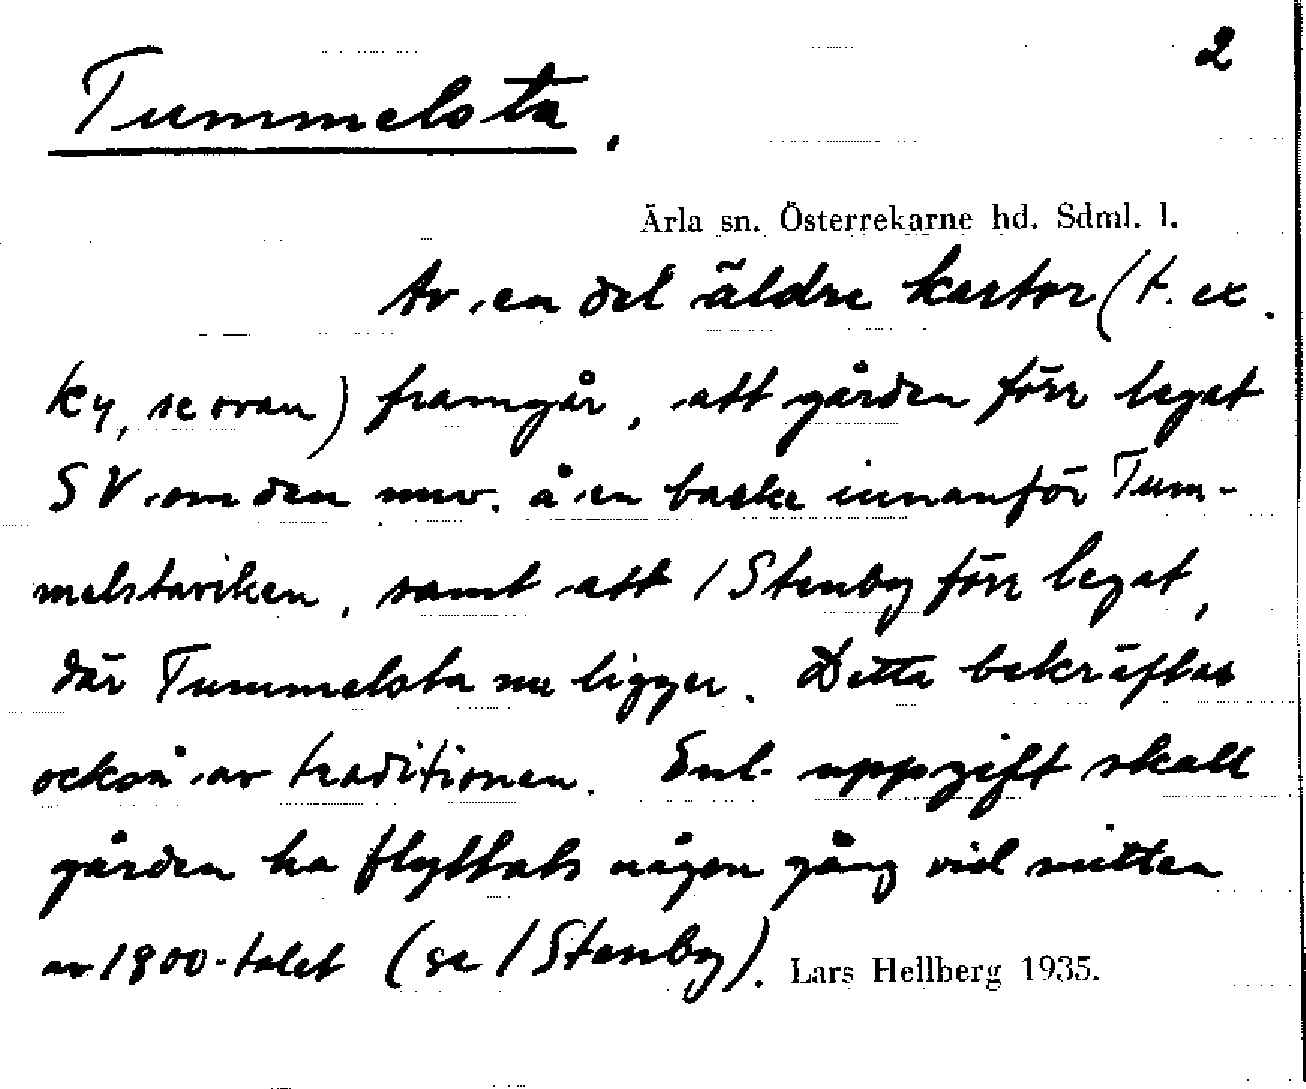 2
Tummelsta.
Ärla sn. Österrekarne hd. Sdml. l.
Av en del äldre kartor (t. ex.
Ky, se ovan) framgår, att gården förr legat
SV om den nuv. å en backe innanför Tum-
melstaviken, samt att / Stenby förr legat,
där Tummelsta nu ligger. Detta bekräftas
också av traditionen. Enl. uppgift skall
gården ha flyttats någon gång vid mitten
av 1800-talet (se / Stenby). Lars Hellberg 1935.